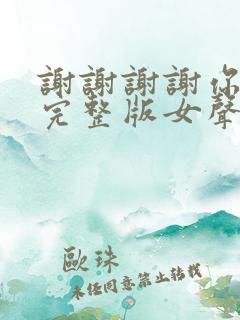 謝謝謝謝你
完整版女聲
歐珠
未经同意禁止转载